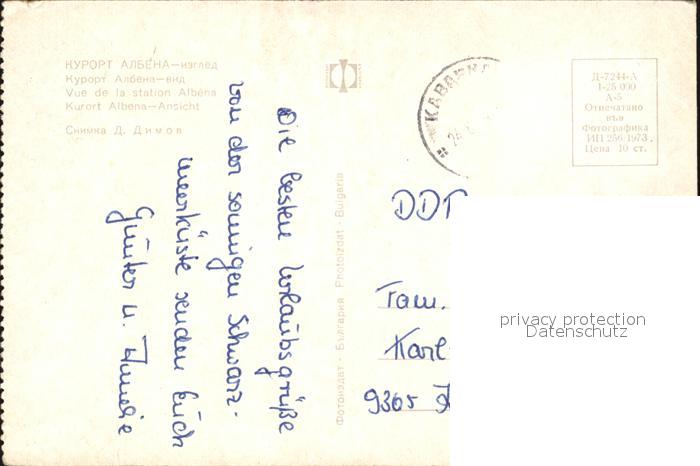 КУРОРТ АЛБЕНА—изглед
Курорт Албена—вид
Vue de la station Albéna
Kurort Albena—Ansicht
Снимка Д. Димов
Die besten Urlaubsgrüße
von der sonnigen Schwarz-
meerküste senden Euch
Günter u. Annelie
Фотоиздат · България Photoizdat · Bulgaria
КАВАРНА
Д-7244-А
1-25 000
А-5
Отпечатано
във
Фотографика
ИП 256/1973.
Цена 10 ст.
DDR
Fam.
Karl-
9305
privacy protection
Datenschutz